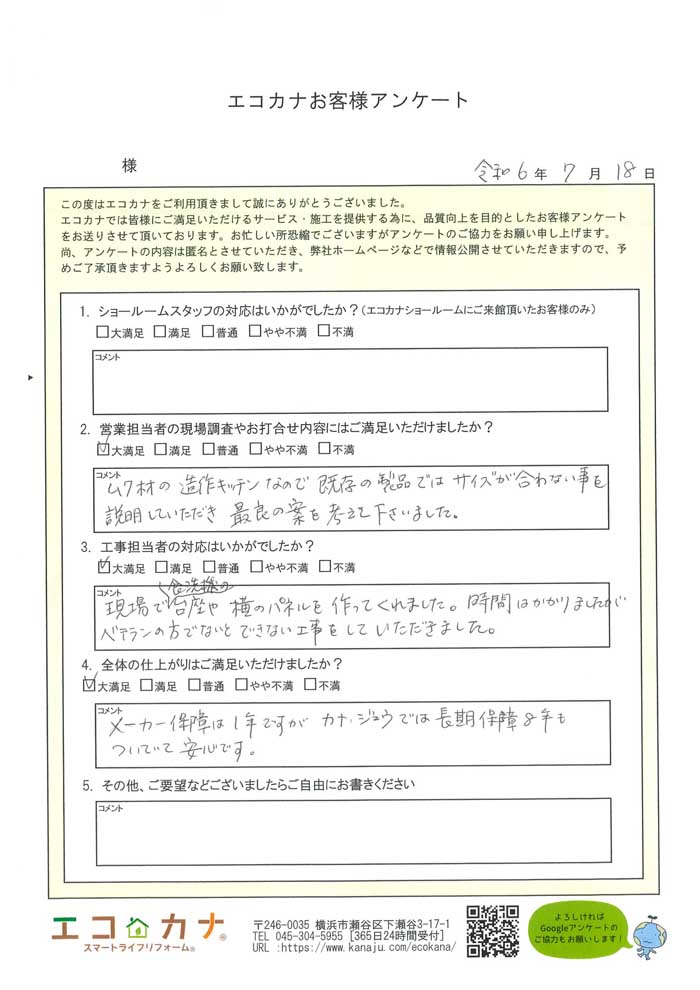 エコカナお客様アンケート
様
令和6年7月18日
この度はエコカナをご利用頂きまして誠にありがとうございました。
エコカナでは皆様にご満足いただけるサービス・施工を提供する為に、品質向上を目的としたお客様アンケート
をお送りさせて頂いております。お忙しい所恐縮でございますがアンケートのご協力をお願い申し上げます。
尚、アンケートの内容は匿名とさせていただき、弊社ホームページなどで情報公開させていただきますので、予
めご了承頂きますようよろしくお願い致します。
1. ショールームスタッフの対応はいかがでしたか？(エコカナショールームにご来館頂いたお客様のみ)
□大満足 □満足 □普通 □やや不満 □不満
コメント
2. 営業担当者の現場調査やお打合せ内容にはご満足いただけましたか？
☑大満足 □満足 □普通 □やや不満 □不満
コメント
ムク材の造作キッチンなので既存の製品ではサイズが合わない事を
説明していただき最良の案を考えて下さいました。
3. 工事担当者の対応はいかがでしたか？
☑大満足 □満足 □普通 □やや不満 □不満
コメント
食洗機の
現場で台座や横のパネルを作ってくれました。時間はかかりましたが
ベテランの方でないとできない工事をしていただきました。
4. 全体の仕上がりはご満足いただけましたか？
☑大満足 □満足 □普通 □やや不満 □不満
コメント
メーカー保障は1年ですがカナ・ジュウでは長期保障8年も
ついていて安心です。
5. その他、ご要望などございましたらご自由にお書きください
コメント
エコカナ®
スマートライフリフォーム®
〒246-0035 横浜市瀬谷区下瀬谷3-17-1
TEL 045-304-5955 [365日24時間受付]
URL :https://www.kanaju.com/ecokana/
よろしければ
Googleアンケートの
ご協力もお願いします！